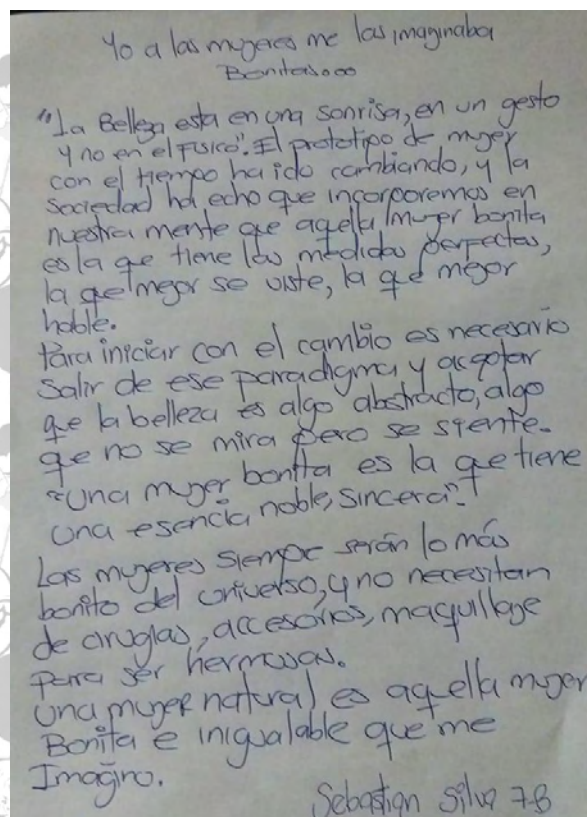 Yo a las mugeres me las imaginaba
Bonitas...
"La Belleza esta en una sonrisa, en un gesto
y no en el Fisico". El prototipo de muger
con el tiempo ha ido cambiando, y la
sociedad ha echo que incorporemos en
nuestra mente que aquella muger bonita
es la que tiene las medidas perfectas,
la que megor se viste, la que megor
hable.
Para iniciar con el cambio es necesario
Salir de ese paradigma y aceptar
que la belleza es algo abstracto, algo
que no se mira pero se siente.
"Una muger bonita es la que tiene
una esencia noble, sincera".
Las mugeres siempre serán lo más
bonito del universo, y no necesitan
de cirugías, accesorios, maquillage
para ser hermosas.
Una muger natural es aquella muger
Bonita e inigualable que me
Imagino.
Sebastian Silva 7-B